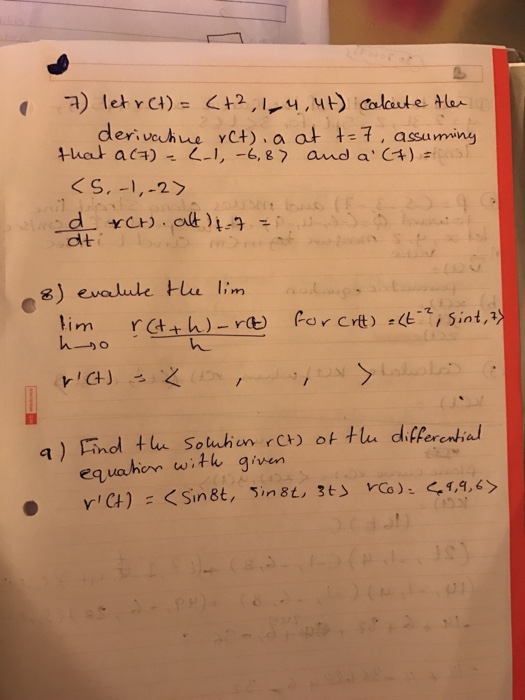 7) let r(t) = <t², 1-4, 4t> calculate the
derivative r(t). a at t=7, assuming
that a(7) = <-1, -6, 8> and a'(7) =
<5, -1, -2>
d/dt r(t). a(t) |t=7 =
8) evalute the lim
lim h→0 r(t+h)-r(t)/h for (r(t) = <t⁻², sint, 7>
r'(t) = < , , >
9) Find the solution r(t) of the differential
equation with given
r'(t) = <sin8t, sin8t, 3t> r(0) = <9,9,6>